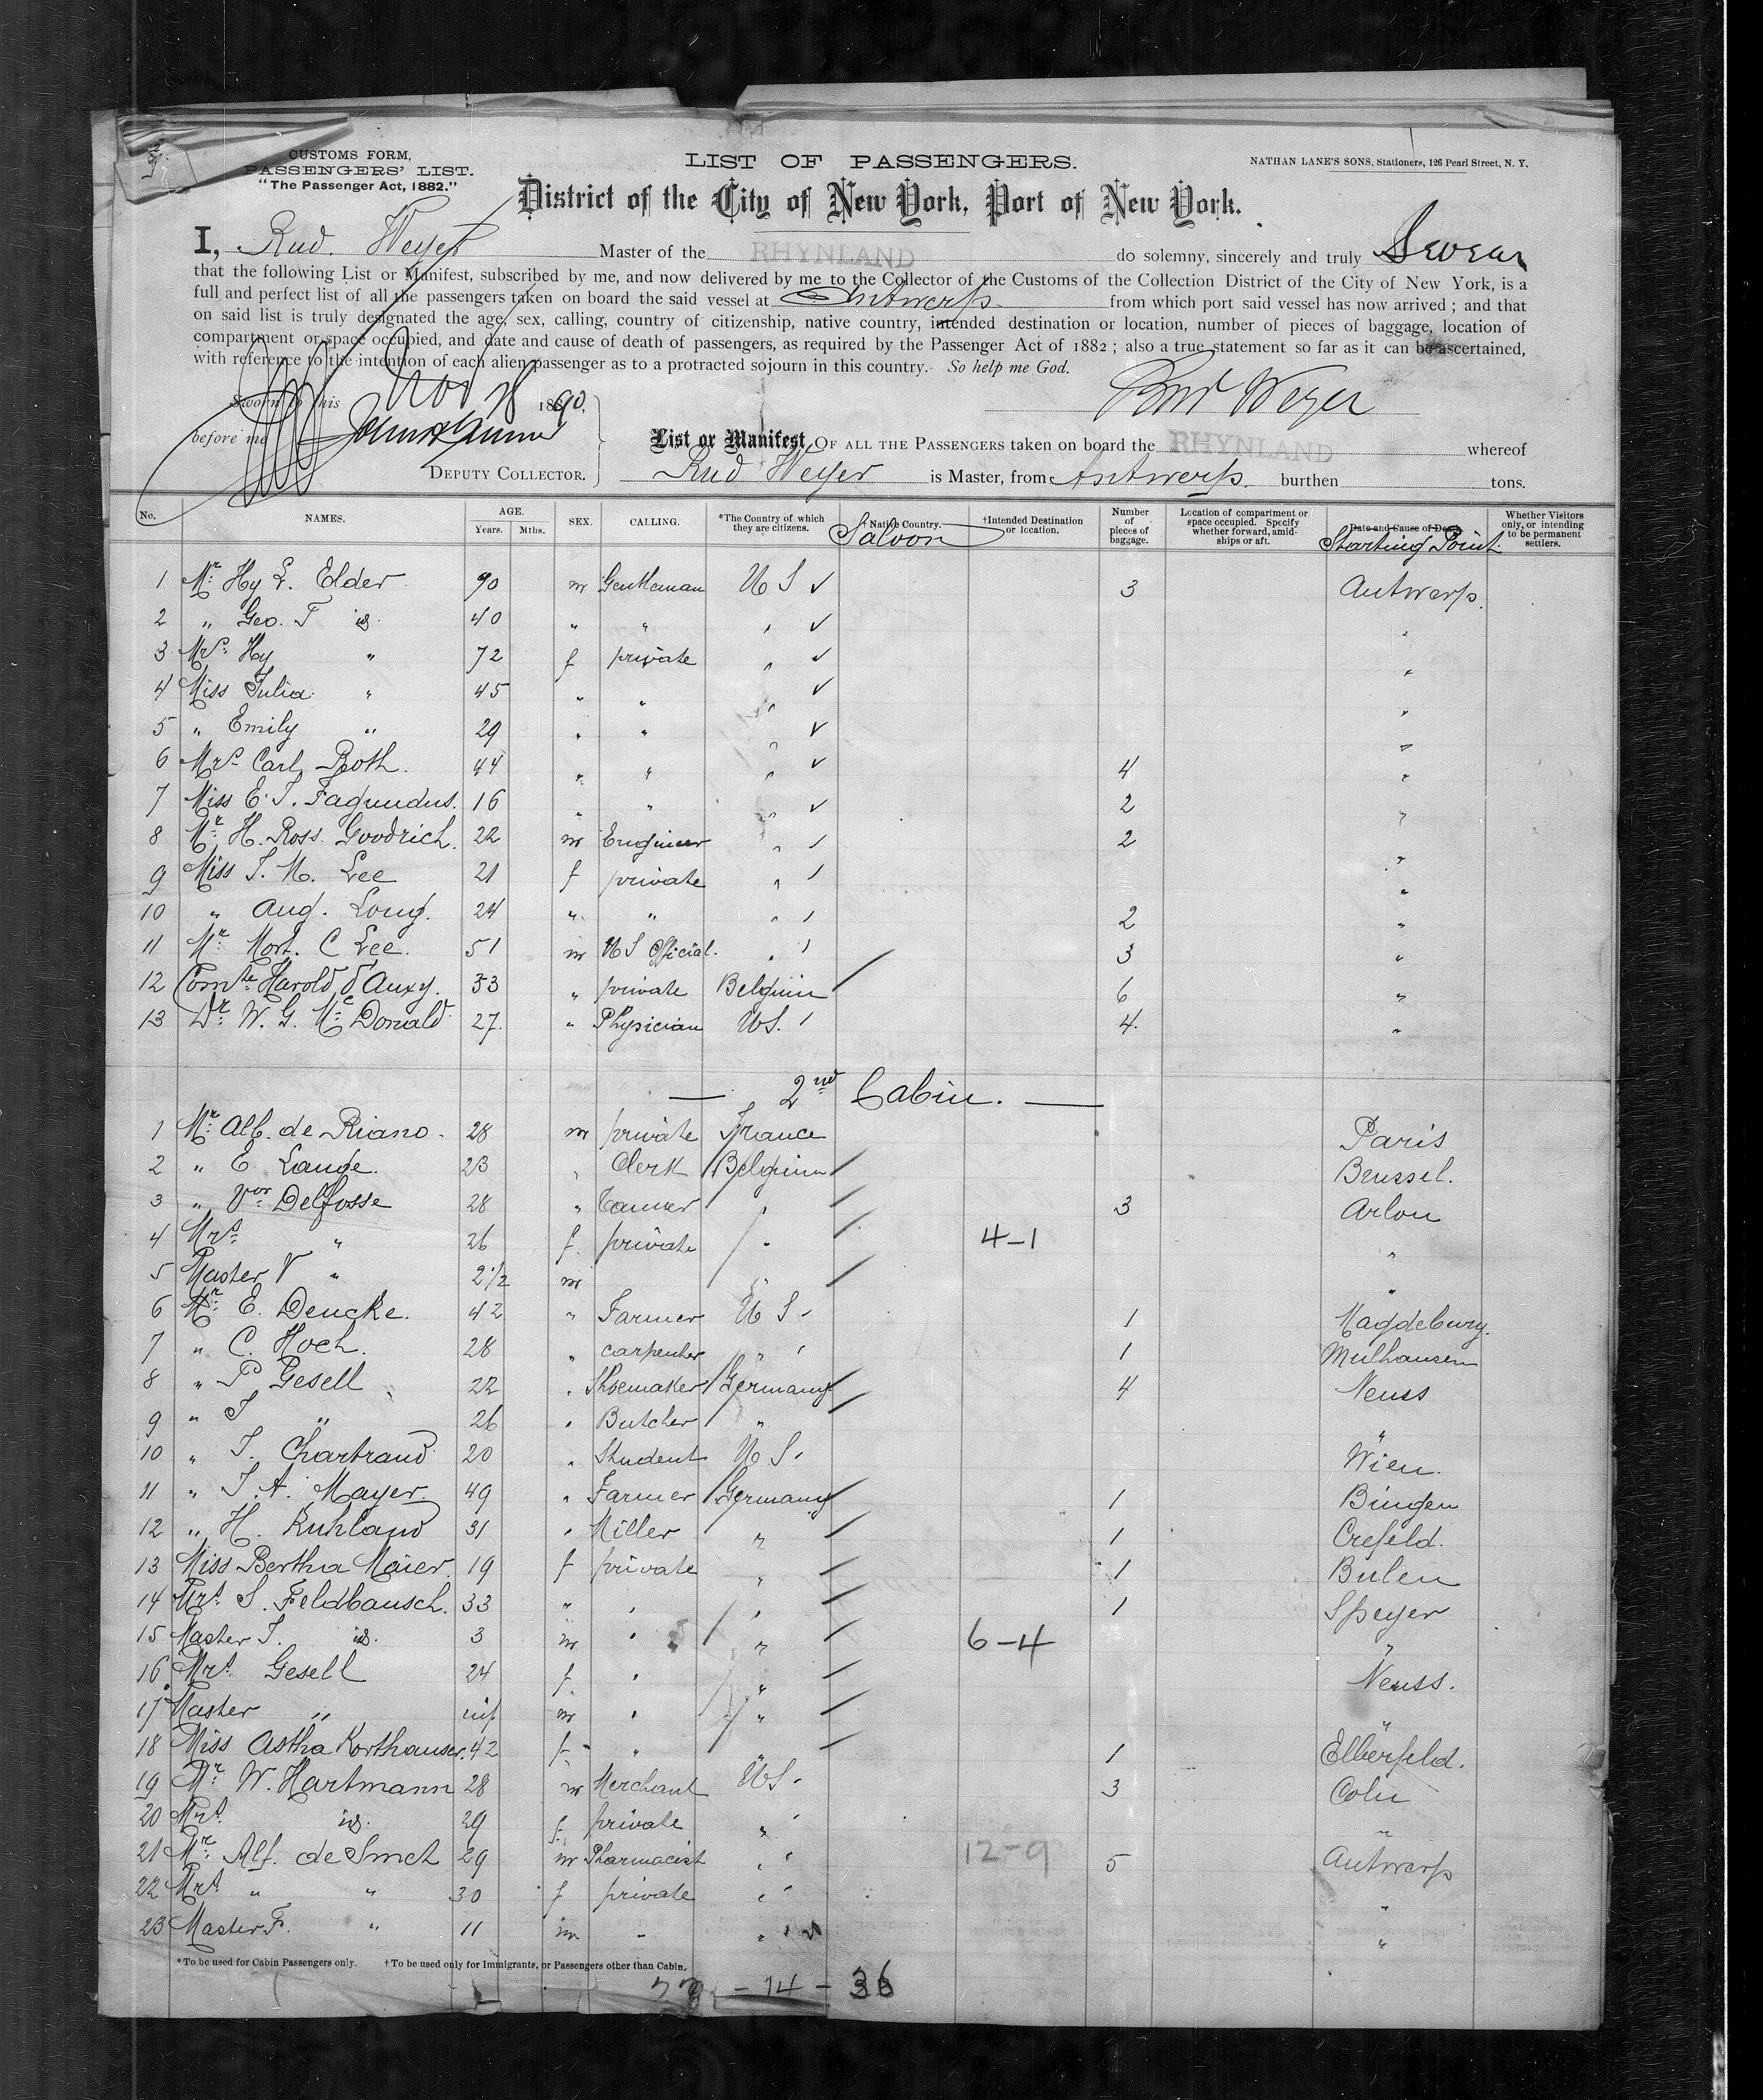 CUSTOMS FORM,
PASSENGERS' LIST.
"The Passenger Act, 1882."
LIST OF PASSENGERS.
NATHAN LANE'S SONS, Stationers, 126 Pearl Street, N. Y.
District of the City of New York, Port of New York.
I, Rud. Weyer Master of the RHYNLAND do solemny, sincerely and truly Swear
that the following List or Manifest, subscribed by me, and now delivered by me to the Collector of the Customs of the Collection District of the City of New York, is a
full and perfect list of all the passengers taken on board the said vessel at Antwerp from which port said vessel has now arrived ; and that
on said list is truly designated the age, sex, calling, country of citizenship, native country, intended destination or location, number of pieces of baggage, location of
compartment or space occupied, and date and cause of death of passengers, as required by the Passenger Act of 1882 ; also a true statement so far as it can be ascertained,
with reference to the intention of each alien passenger as to a protracted sojourn in this country. So help me God.
Sworn to this Nov 1890,
Rud Weyer
before me
List or Manifest, OF ALL THE PASSENGERS taken on board the RHYNLAND whereof
DEPUTY COLLECTOR.
Rud Weyer is Master, from Antwerp. burthen tons.
No. NAMES. AGE. Years. Mths. SEX. CALLING. *The Country of which they are citizens. Native Country. †Intended Destination or location. Number of pieces of baggage. Location of compartment or space occupied. Specify whether forward, amidships or aft. Date and Cause of Death. Whether Visitors only, or intending to be permanent settlers.
Saloon Starting Point.
1 Mr. Hy L. Elder 90 m Gentleman U S 3 Antwerp.
2 " Geo. T id. 40 " " " "
3 Mrs. Hy " 72 f private " "
4 Miss Julia " 45 " " " "
5 " Emily " 29 " " " "
6 Mrs. Carl Roth. 44 " " " 4 "
7 Miss E. J. Fagundus. 16 " " " 2 "
8 Mr. H. Ross Goodrich. 22 m Engineer " 2 "
9 Miss J. M. Lee 21 f private " "
10 " Aug. Long. 24 " " " 2 "
11 Mr. Mort. C Lee. 51 m U S Official. " 3 "
12 Comte Harold d'Auxy. 33 " private Belgium 6 "
13 Dr. W. G. Mc Donald 27. " Physician US. 4. "
— 2nd Cabin. —
1 Mr. Alb. de Riano. 28 m private France Paris
2 " E Lande. 23 " Clerk Belgium Brussel.
3 " Vor Delfosse 28 " Tanner " 3 Arlon
4 Mrs. " 26 f. private " 4-1 "
5 Master V " 2 1/2 m " "
6 Mr. E. Dencke. 42 " Farmer U S. 1 Magdeburg.
7 " C. Hoch. 28 " carpenter " 1 Mulhausen
8 " P Gesell 22 " Shoemaker Germany 4 Neuss
9 " J " 26 " Butcher " "
10 " J. Chartrand 20 " Student U S. Wien.
11 " J. A. Mayer. 49 " Farmer Germany 1 Bingen
12 " H. Ruhland 31 " Miller " 1 Crefeld.
13 Miss Bertha Maier. 19 f private " 1 Bulen
14 Mrs. S. Feldbausch. 33 " " " 1 Speyer
15 Master J. id. 3 m " " 6-4 "
16 Mrs. Gesell 24 f. " " Neuss.
17 Master " inf. m " " "
18 Miss Astha Korthauser. 42 f. " " 1 Elberfeld.
19 Mr. W. Hartmann 28 m Merchant US. 3 Coln
20 Mrs. id. 29 f. private " "
21 Mr. Alf. de Smet 29 m Pharmacist " 12-9 5 Antwerp
22 Mrs. " " 30 f private " "
23 Master F. " 11 m " " "
*To be used for Cabin Passengers only. †To be used only for Immigrants, or Passengers other than Cabin.
- 14 - 36